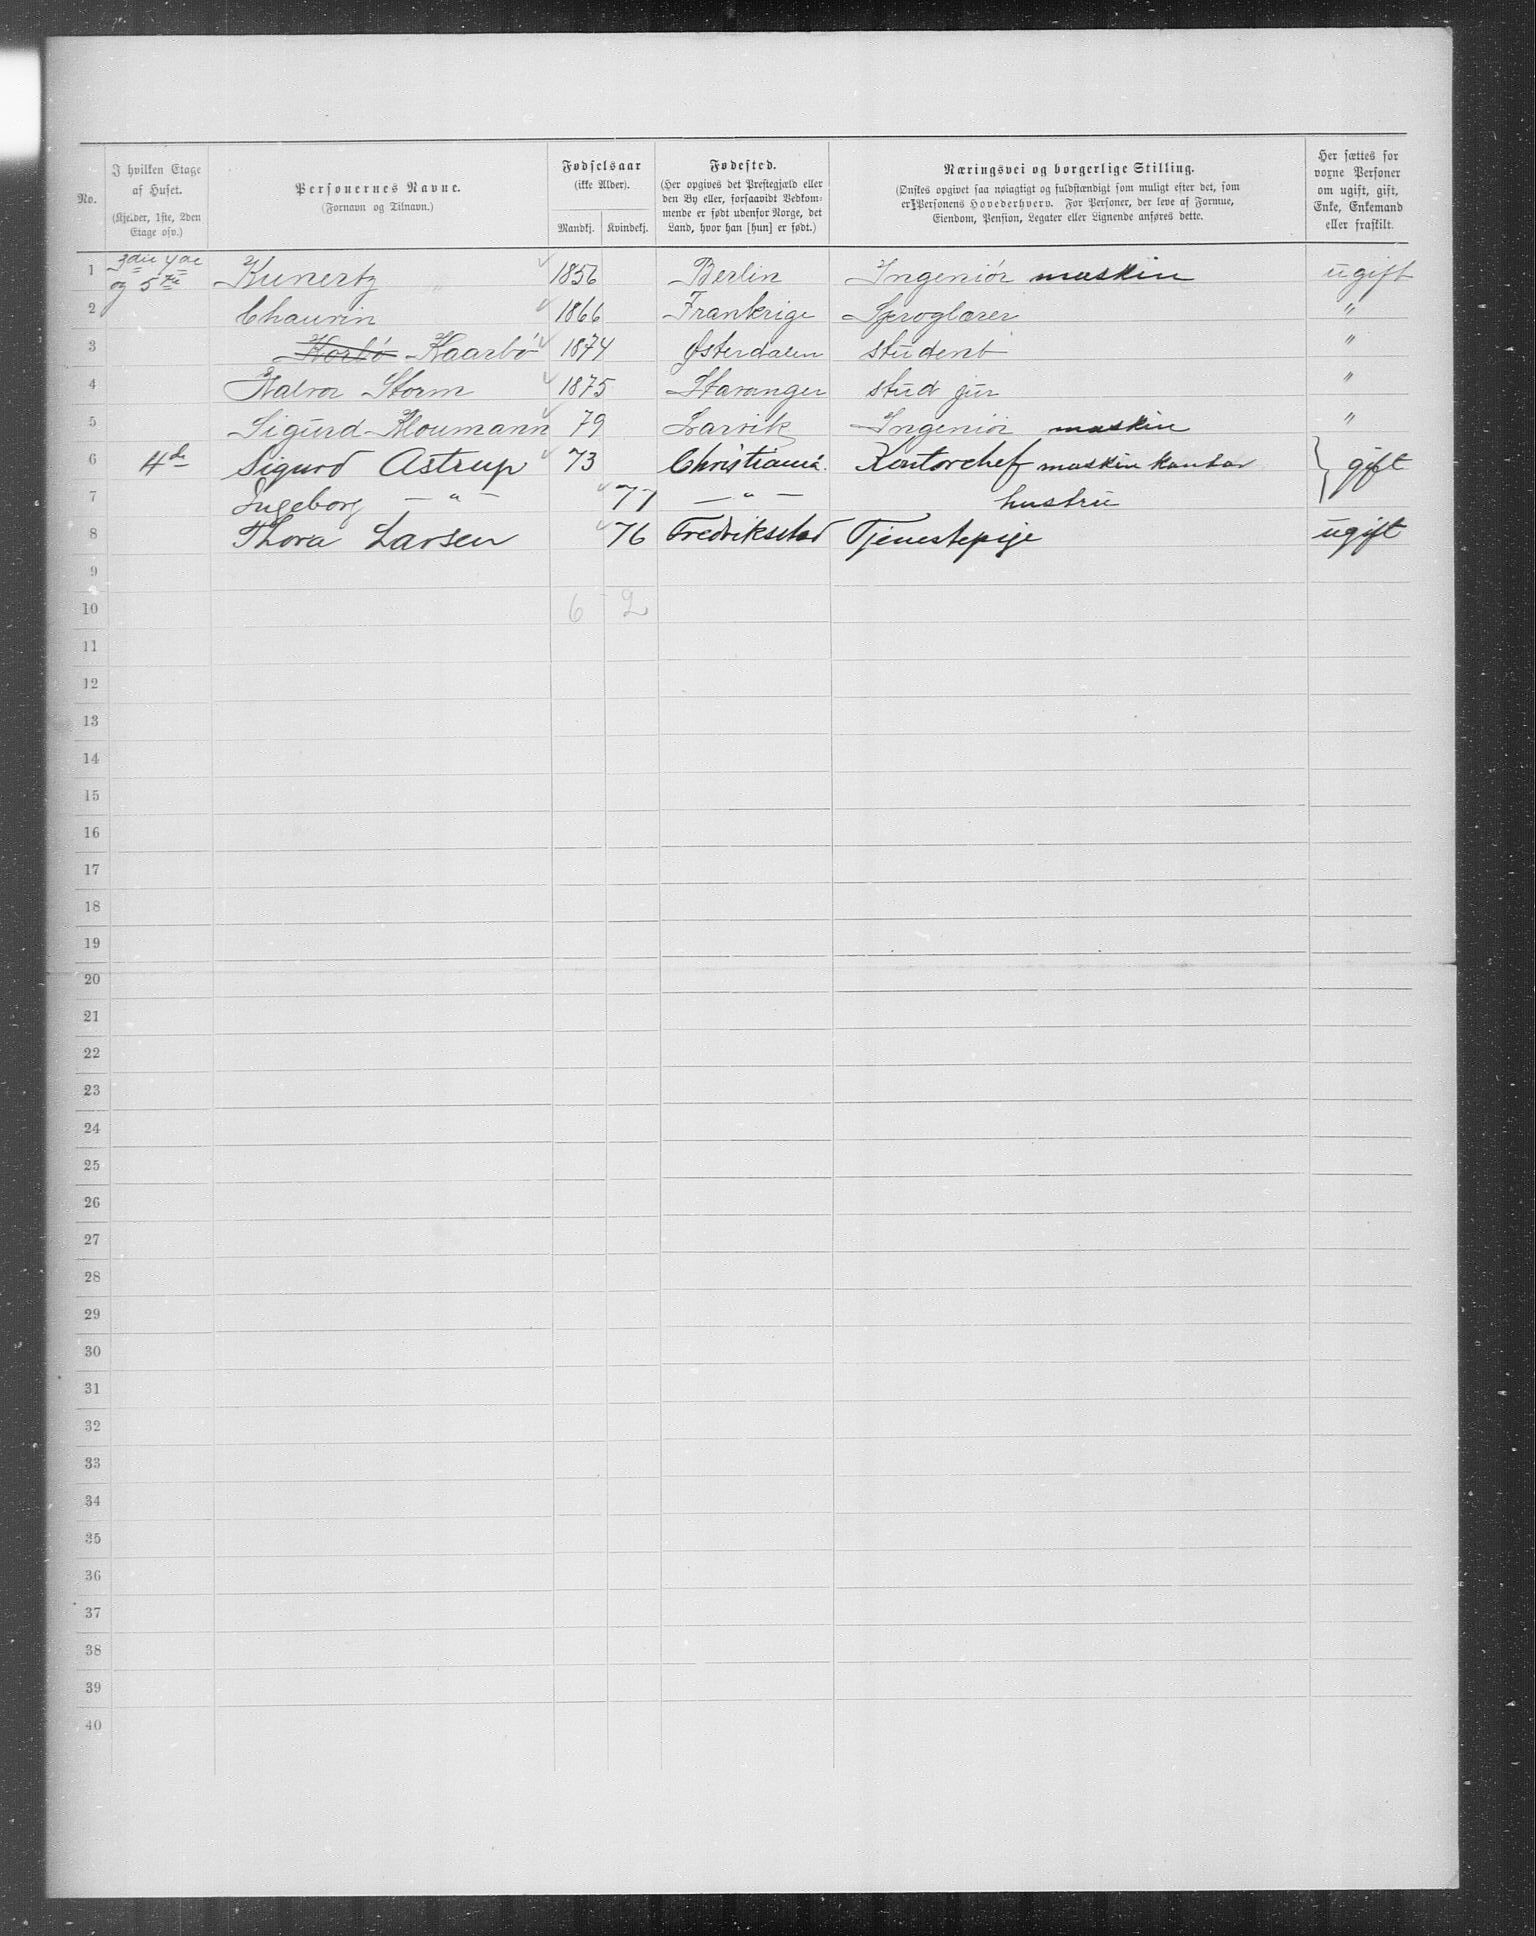 No.
I hvilken Etage af Huset.
(Kjelder, 1ste, 2den Etage osv.)
Personernes Navne.
(Fornavn og Tilnavn.)
Fødselsaar
(ikke Alder).
Mandkj. Kvindekj.
Fødested.
(Her opgives det Prestegjæld eller den By eller, forsaavidt Vedkommende er født udenfor Norge, det Land, hvor han [hun] er født.)
Næringsvei og borgerlige Stilling.
(Ønskes opgivet saa nøiagtigt og fuldstændigt som muligt efter det, som er Personens Hovederhverv. For Personer, der leve af Formue, Eiendom, Pension, Legater eller Lignende anføres dette.
Her sættes for vorne Personer om ugift, gift, Enke, Enkemand eller fraskilt.
1 3die 4de og 5te Kunertz 1856 Berlin Ingeniør maskin ugift
2 Chauvin 1866 Frankrige Sproglærer "
3 Korbø Kaarbø 1874 Østerdalen student "
4 Halvor Storm 1875 Stavanger stud jur "
5 Sigurd Kloumann 79 Larvik Ingeniør maskin "
6 4de Sigurd Astrup 73 Christiania. Kontorchef maskin kontor gift
7 Ingeborg — " — 77 — " — hustru
8 Thora Larsen 76 Fredrikstad Tjenestepige ugift
9
10 6 2
11
12
13
14
15
16
17
18
19
20
21
22
23
24
25
26
27
28
29
30
31
32
33
34
35
36
37
38
39
40